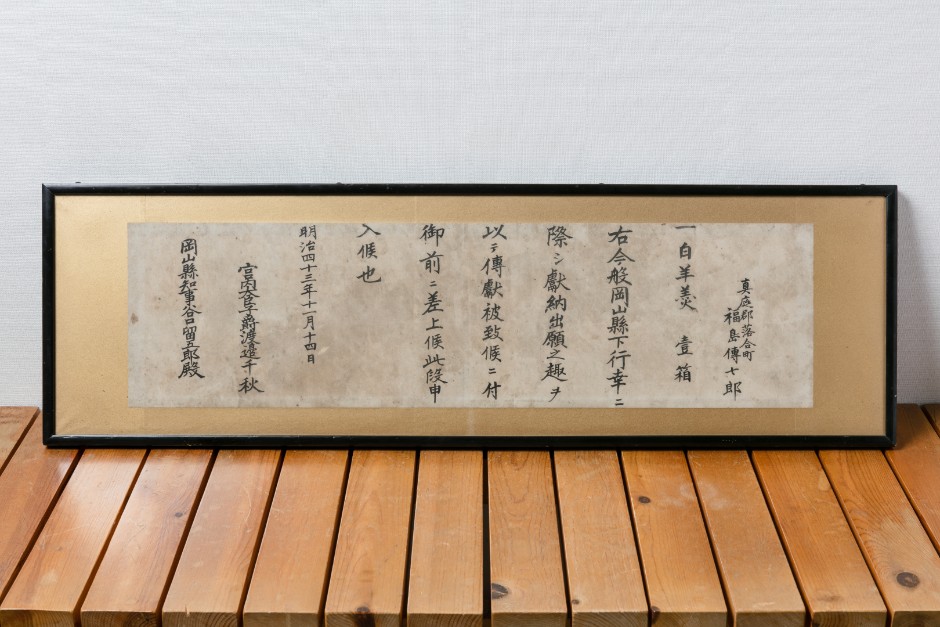 真庭郡落合町
福島傳十郎
一白羊羹 壹箱
右今般岡山縣下行幸ニ
際シ獻納出願之趣ヲ
以テ傳獻被致候ニ付
御前ニ差上候此段申
入候也
明治四十三年十一月十四日
宮内大臣子爵渡邉千秋
岡山縣知事谷口留五郎殿